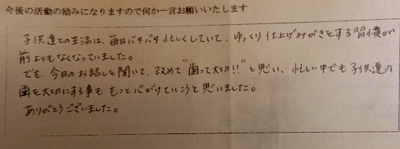 今後の活動の励みになりますので何か一言お願いいたします
子供達との生活は、毎日バタバタ忙しくしていて、ゆっくり仕上げみがきをする習慣が
前よりもなくなっていました。
でも、今日のお話しを聞いて、改めて"歯って大切!!"と思い、忙しい中でも子供達の
歯を大切にする事をもっと心がけていこうと思いました。
ありがとうございました。